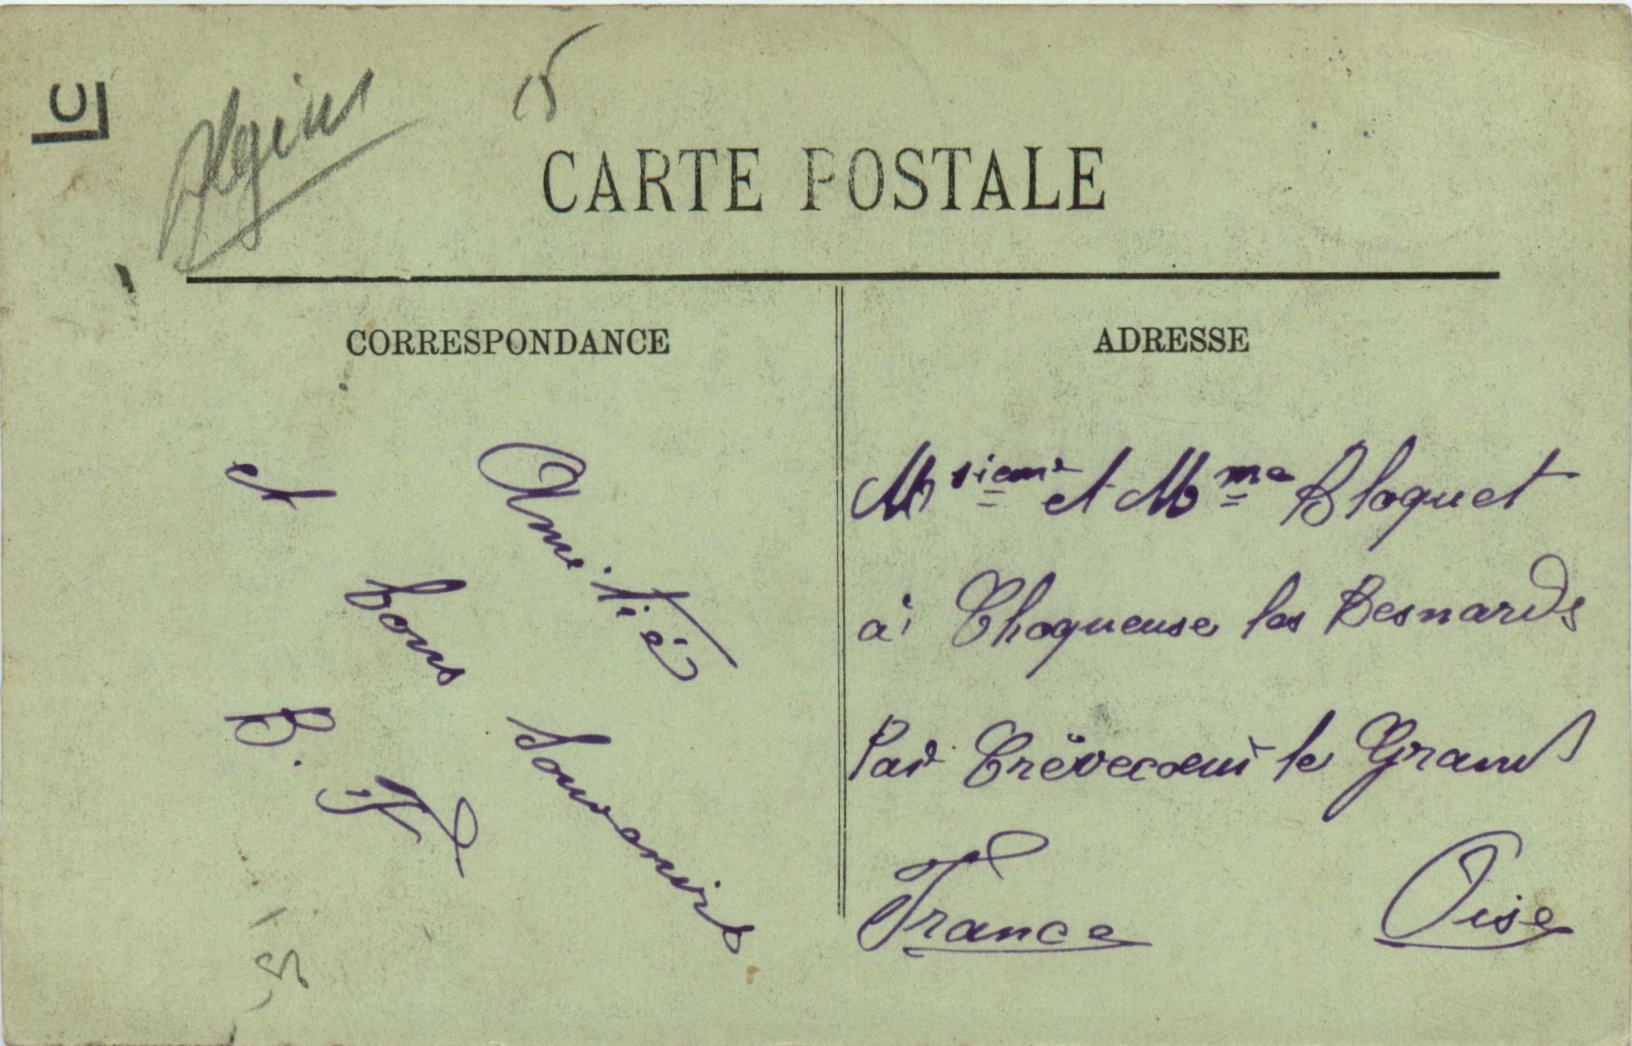 15
CARTE POSTALE
CORRESPONDANCE
Amitié
et bons souvenirs
B. F
ADRESSE
Mrsieur et Mme Bloquet
à Choqueuse les Besnards
Par Crèvecoeur le Grand
France Oise